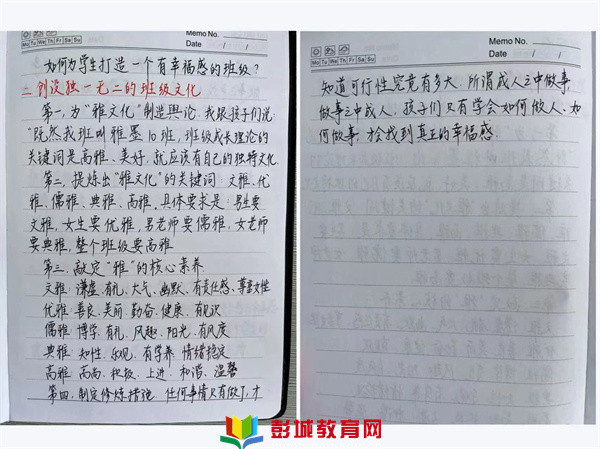 Memo No.
Mo Tu We Th Fr Sa Su
Date / /
如何为学生打造一个有幸福感的班级?
二 创设独一无二的班级文化
第一,为“雅文化”制造舆论.我跟孩子们说:
“既然我班叫雅墨10班,班级成长理论的
关键词是高雅、美好,就应该有自己的独特文化
第二,提炼出“雅文化”的关键词:文雅、优
雅、儒雅、典雅、高雅,具体要求是:男生要
文雅,女生要优雅,男老师要儒雅,女老师
要典雅,整个班级要高雅
第三,敲定“雅”的核心素养
文雅:谦虚、有礼、大气、幽默、有责任感、尊重女性
优雅:善良、美丽、勤奋、健康、有见识
儒雅:博学、有礼、风趣、阳光、有风度
典雅:知性、乐观、有学养、情绪稳定
高雅:高尚、积极、上进、和谐、温馨
第四,制定修炼措施 任何事情只有做了,才
Memo No.
Mo Tu We Th Fr Sa Su
Date / /
知道可行性究竟有多大.所谓成人之中做事,
做事之中成人,孩子们只有学会如何做人、如
何做事,才会找到真正的幸福感.
彭城教育网